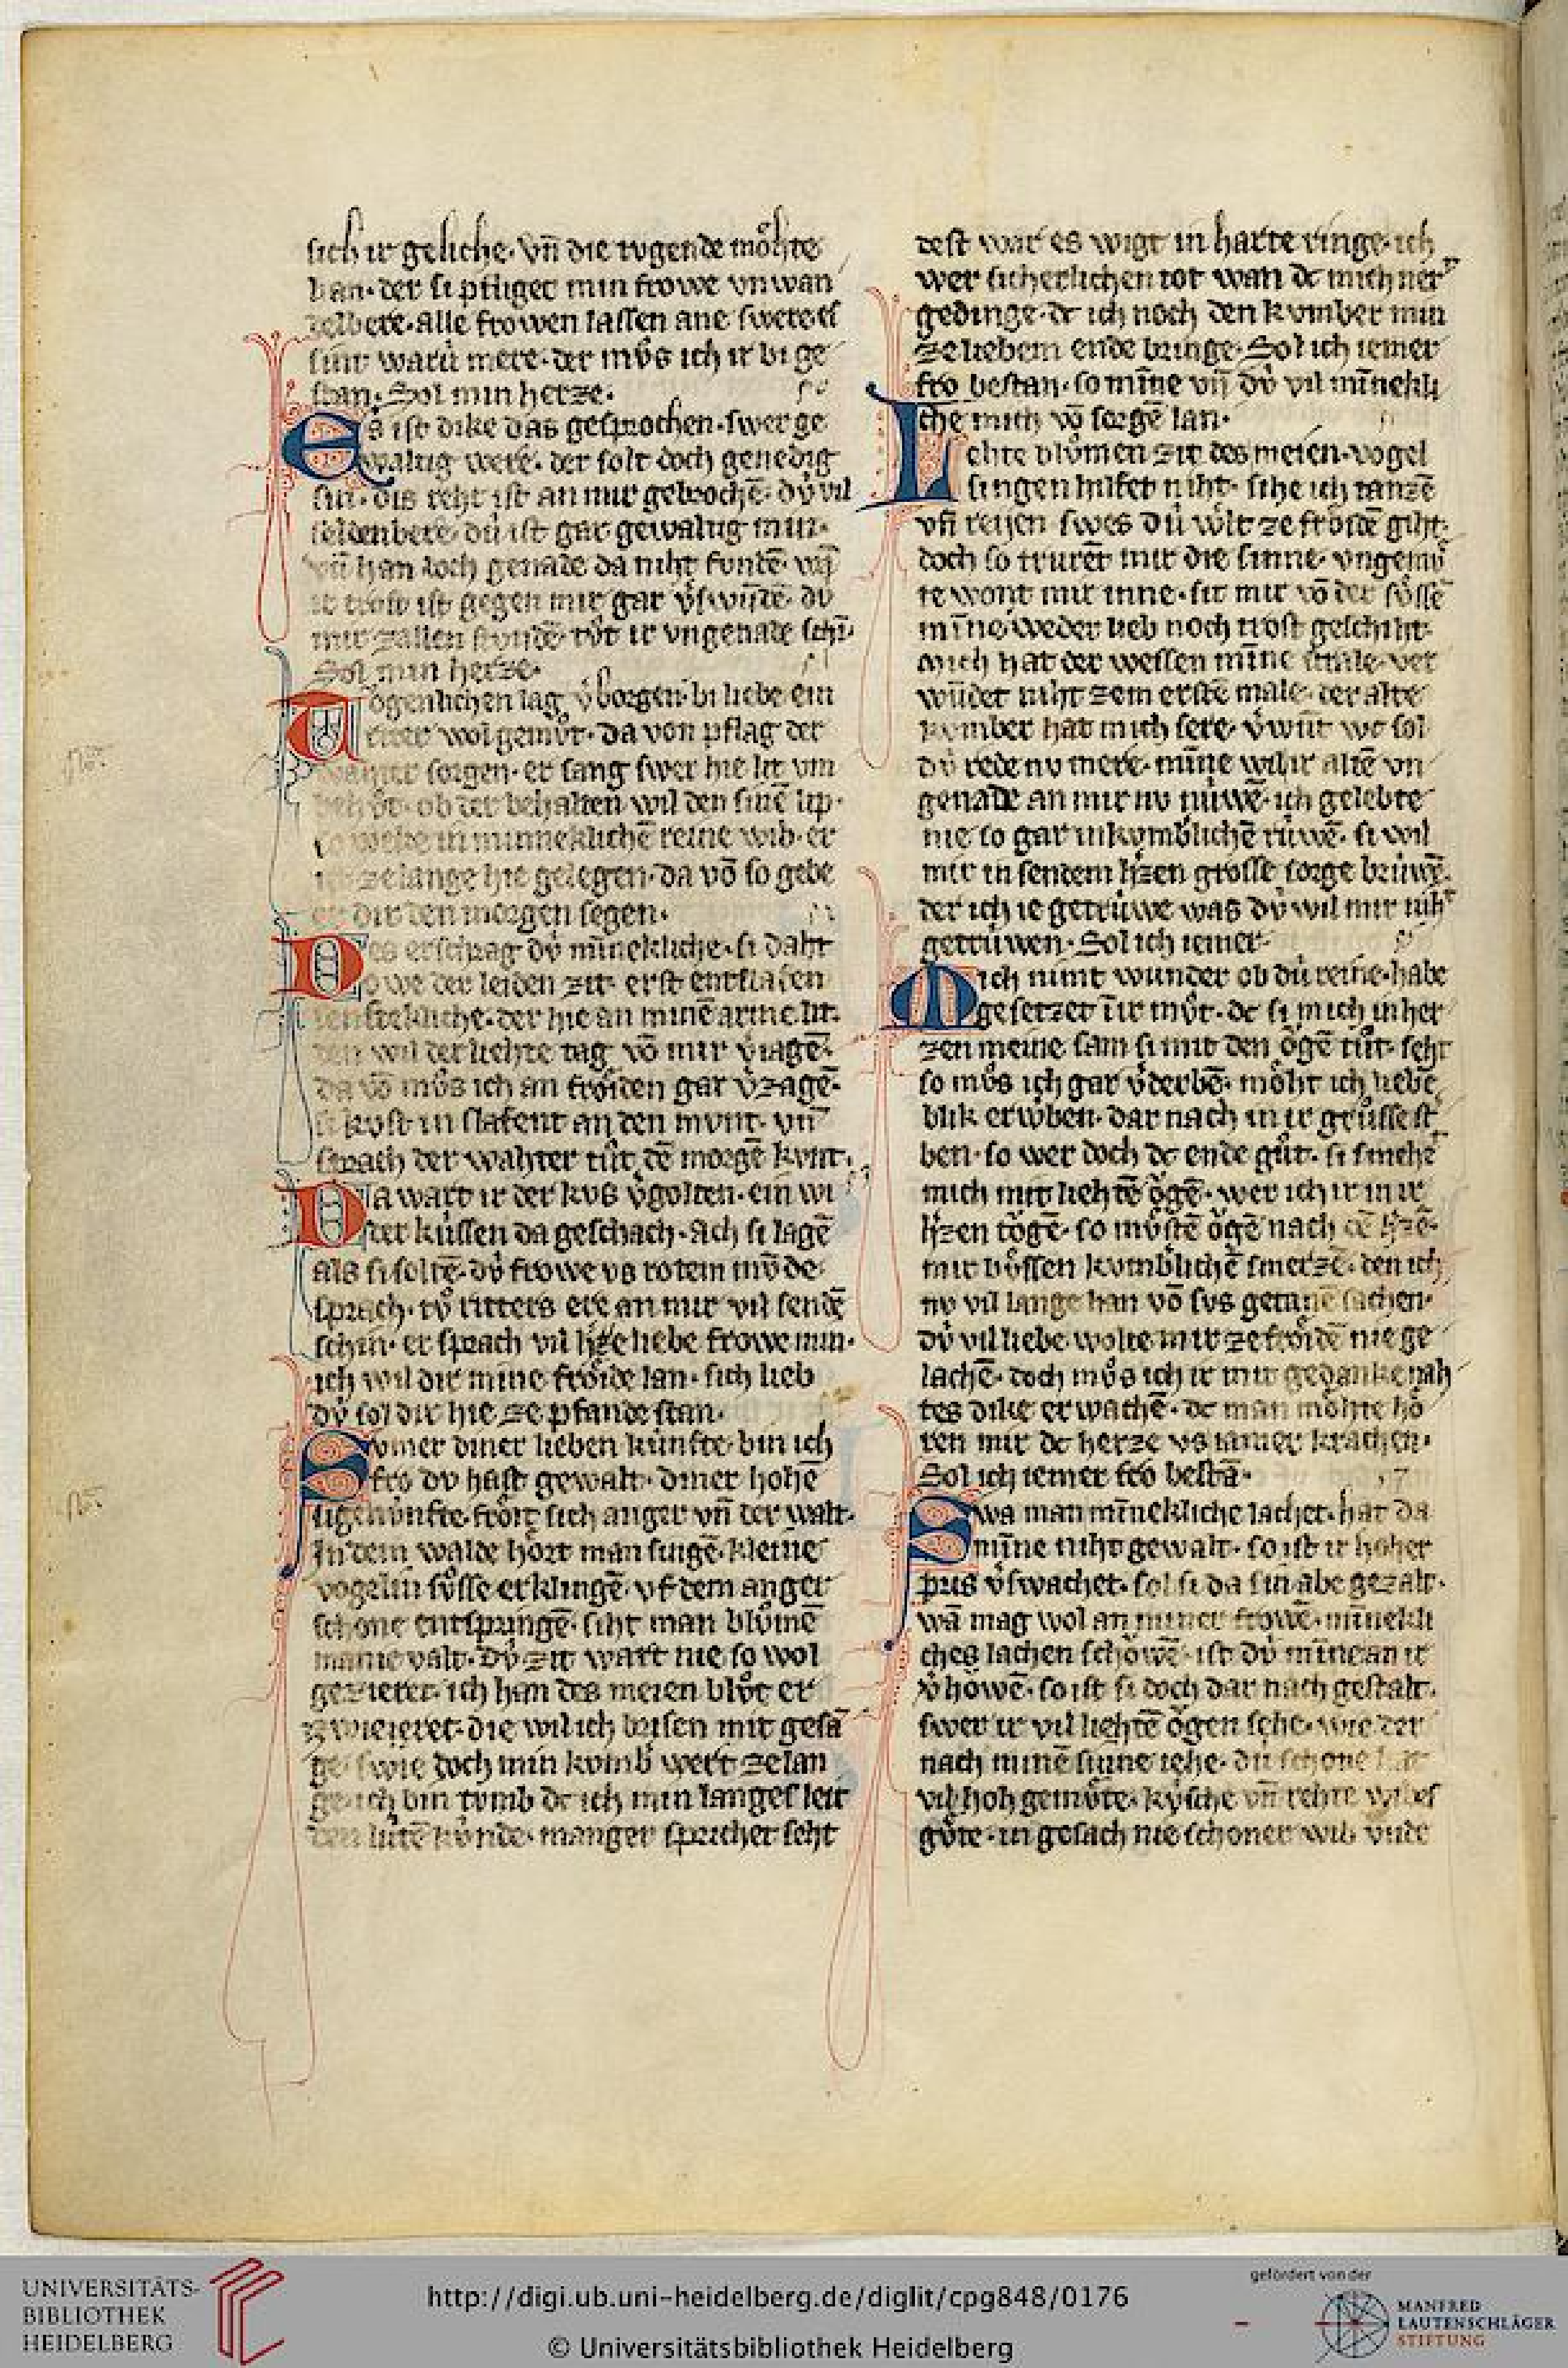 sich ir geliche. vn̄ die tugende möhte
han. der si pfliget min frowe vnwan
delbere. alle frowen lassen ane swere es
sint warú mere. der mv̊s ich ir bi ge
stan. Sol min herze.
Es ist dike das gesprochen. swer ge
waltig were. der solt doch genedig
sin. dis reht ist an mir gebrochē. dv́ vil
seldenbere. dú ist gar gewaltig min.
vn̄ han doch genade da niht fundē. wā
ir trost ist gegen mir gar v̓swūdē. dv
mir zallen stvndē. tv̊t ir vngenade schī.
Sol min herze.
Tögenlichen lag v̓borgen. bi liebe ein
ritter wol gemv̊t. da von pflag der
wahter sorgen. er sang swer hie lit vm
behv̊t. ob der behalten wil den sinē lip.
so weke in minneklichē reine wib. er
ist ze lange hie gelegen. da vō so gebe
er dir den morgen segen.
Des erschrag dv́ minekliche. si daht
owe der leiden zit. erst entslafen
senfteкliche. der hie an minē arme lit.
den wil der liehte tag vō mir v̓iagē.
da vō mv̊s ich an fröiden gar v̓zagē.
si kvst in slafent an den mvnt. vn̄
sprach der wahter tv̊t dē morgē kvnt.
Da wart ir der kvs v̓golten. ein wi
der küssen da geschach. Ach si lagē
als si soltē. dv́ frowe vs rotem mv̄de.
sprach. tv̊ ritters ere an mir vil sendē
schin. er sprach vil hʼze liebe frowe min.
ich wil dir mine fröide lan. sich lieb
dv́ sol dir hie ze pfande stan.
Svmer diner lieben kúnfte. bin ich
fro dv hast gewalt. diner hohē
sigenvnfte. fröit sich anger vn̄ der walt.
In dem walde hört man singē. kleine
vogelin sv̊sse erklingē. vf dem anger
schone entspringē. siht man blv̊mē
manicvalt. Dv́ zit wart nie so wol
gezieret. ich han des meien blv̊t er
zwieieret. die wil ich brisen mit gesā
ge. swie doch min kvmbʼ wert ze lan
ge. ich bin tvmb dc ich min langes leit
den lútē kúnde. manger sprichet seht
dest war es wigt in harte ringe. ich
wer sicherlichen tot wan dc mich nerʼ
gedinge. dc ich noch den kvmber min
ze liebem ende bringe. Sol ich iemer
fro bestan. so mīne vn̄ dv́ vil mīnekli
che mich vō sorgē lan.
Lehte blv̊men zit des meien. vogel
singen hilfet niht. sihe ich tanzē
vn̄ reijen. swes dú wlt ze fröidē giht.
doch so trurēt mir die sinne. vngemv̊
te wont mir inne. sit mir vō der sv̊sse
mīne. weder lieb noch trost geschiht.
Mich hat der wessen mīne strale. ver
wūdet niht zem erstē male. der alte
kvmber hat mich sere. v̓wnt wc sol
dv́ rede nv mere. mīne wil ir altē vn
genade an mir nv núwē. ich gelebte
nie so gar in kvmbʼlichē rúwē. si wil
mir in sendem hʼzen grosse sorge brúwē.
der ich ie getrúwe was dv́ wil mir nihʼ
getrúwen. Sol ich iemer
Mich nimt wunder ob dú reine. habe
gesetzet ī ir mv̊t. dc si mich in her
zen meine. sam si mit den ögē tv̊t. seht
so mv̊s ich gar v̓derbē. möht ich liebē
blik erwʼben. dar nach in ir grüsse stʼ
ben. so wer doch dc ende gv̊t. si smehē
mich mit liehtē ögē. wer ich ir in ir
hʼzen tögē. so mv̊stē ögē nach dē hʼzē.
mir bv̊ssen kvmbʼlichē smerzē. den ich
nv vil lange han vō svs getanē sachen.
dv́ vil liebe wolte mir ze fröidē nie ge
lachē. doch mv̊s ich ir mit gedanke nah
tes dike erwachē. dc man möhte hö
ren mir dc herze vs iamer krachen.
Sol ich iemer fro bestā.
Swa man mīnekliche lachet. hat da
mīne niht gewalt. so ist ir hoher
pris v̓swachet. sol si da sin abe gezalt.
wā mag wol an miner frowē. mīnekli
ches lachen schöwē. ist dv́ mīne an ir
v̓höwē. so ist si doch dar nach gestalt.
swer ir vil liehtē ögen sehe. wie der
nach minē sinne iehe. dú schone hat
vil hoh gemv̊te. kv́sche vn̄ rehte wibes
gv̊te. in gesach nie schoner wib vnde
UNIVERSITÄTS-
BIBLIOTHEK
HEIDELBERG
http://digi.ub.uni-heidelberg.de/diglit/cpg848/0176
© Universitätsbibliothek Heidelberg
gefördert von der
MANFRED
LAUTENSCHLÄGER
STIFTUNG